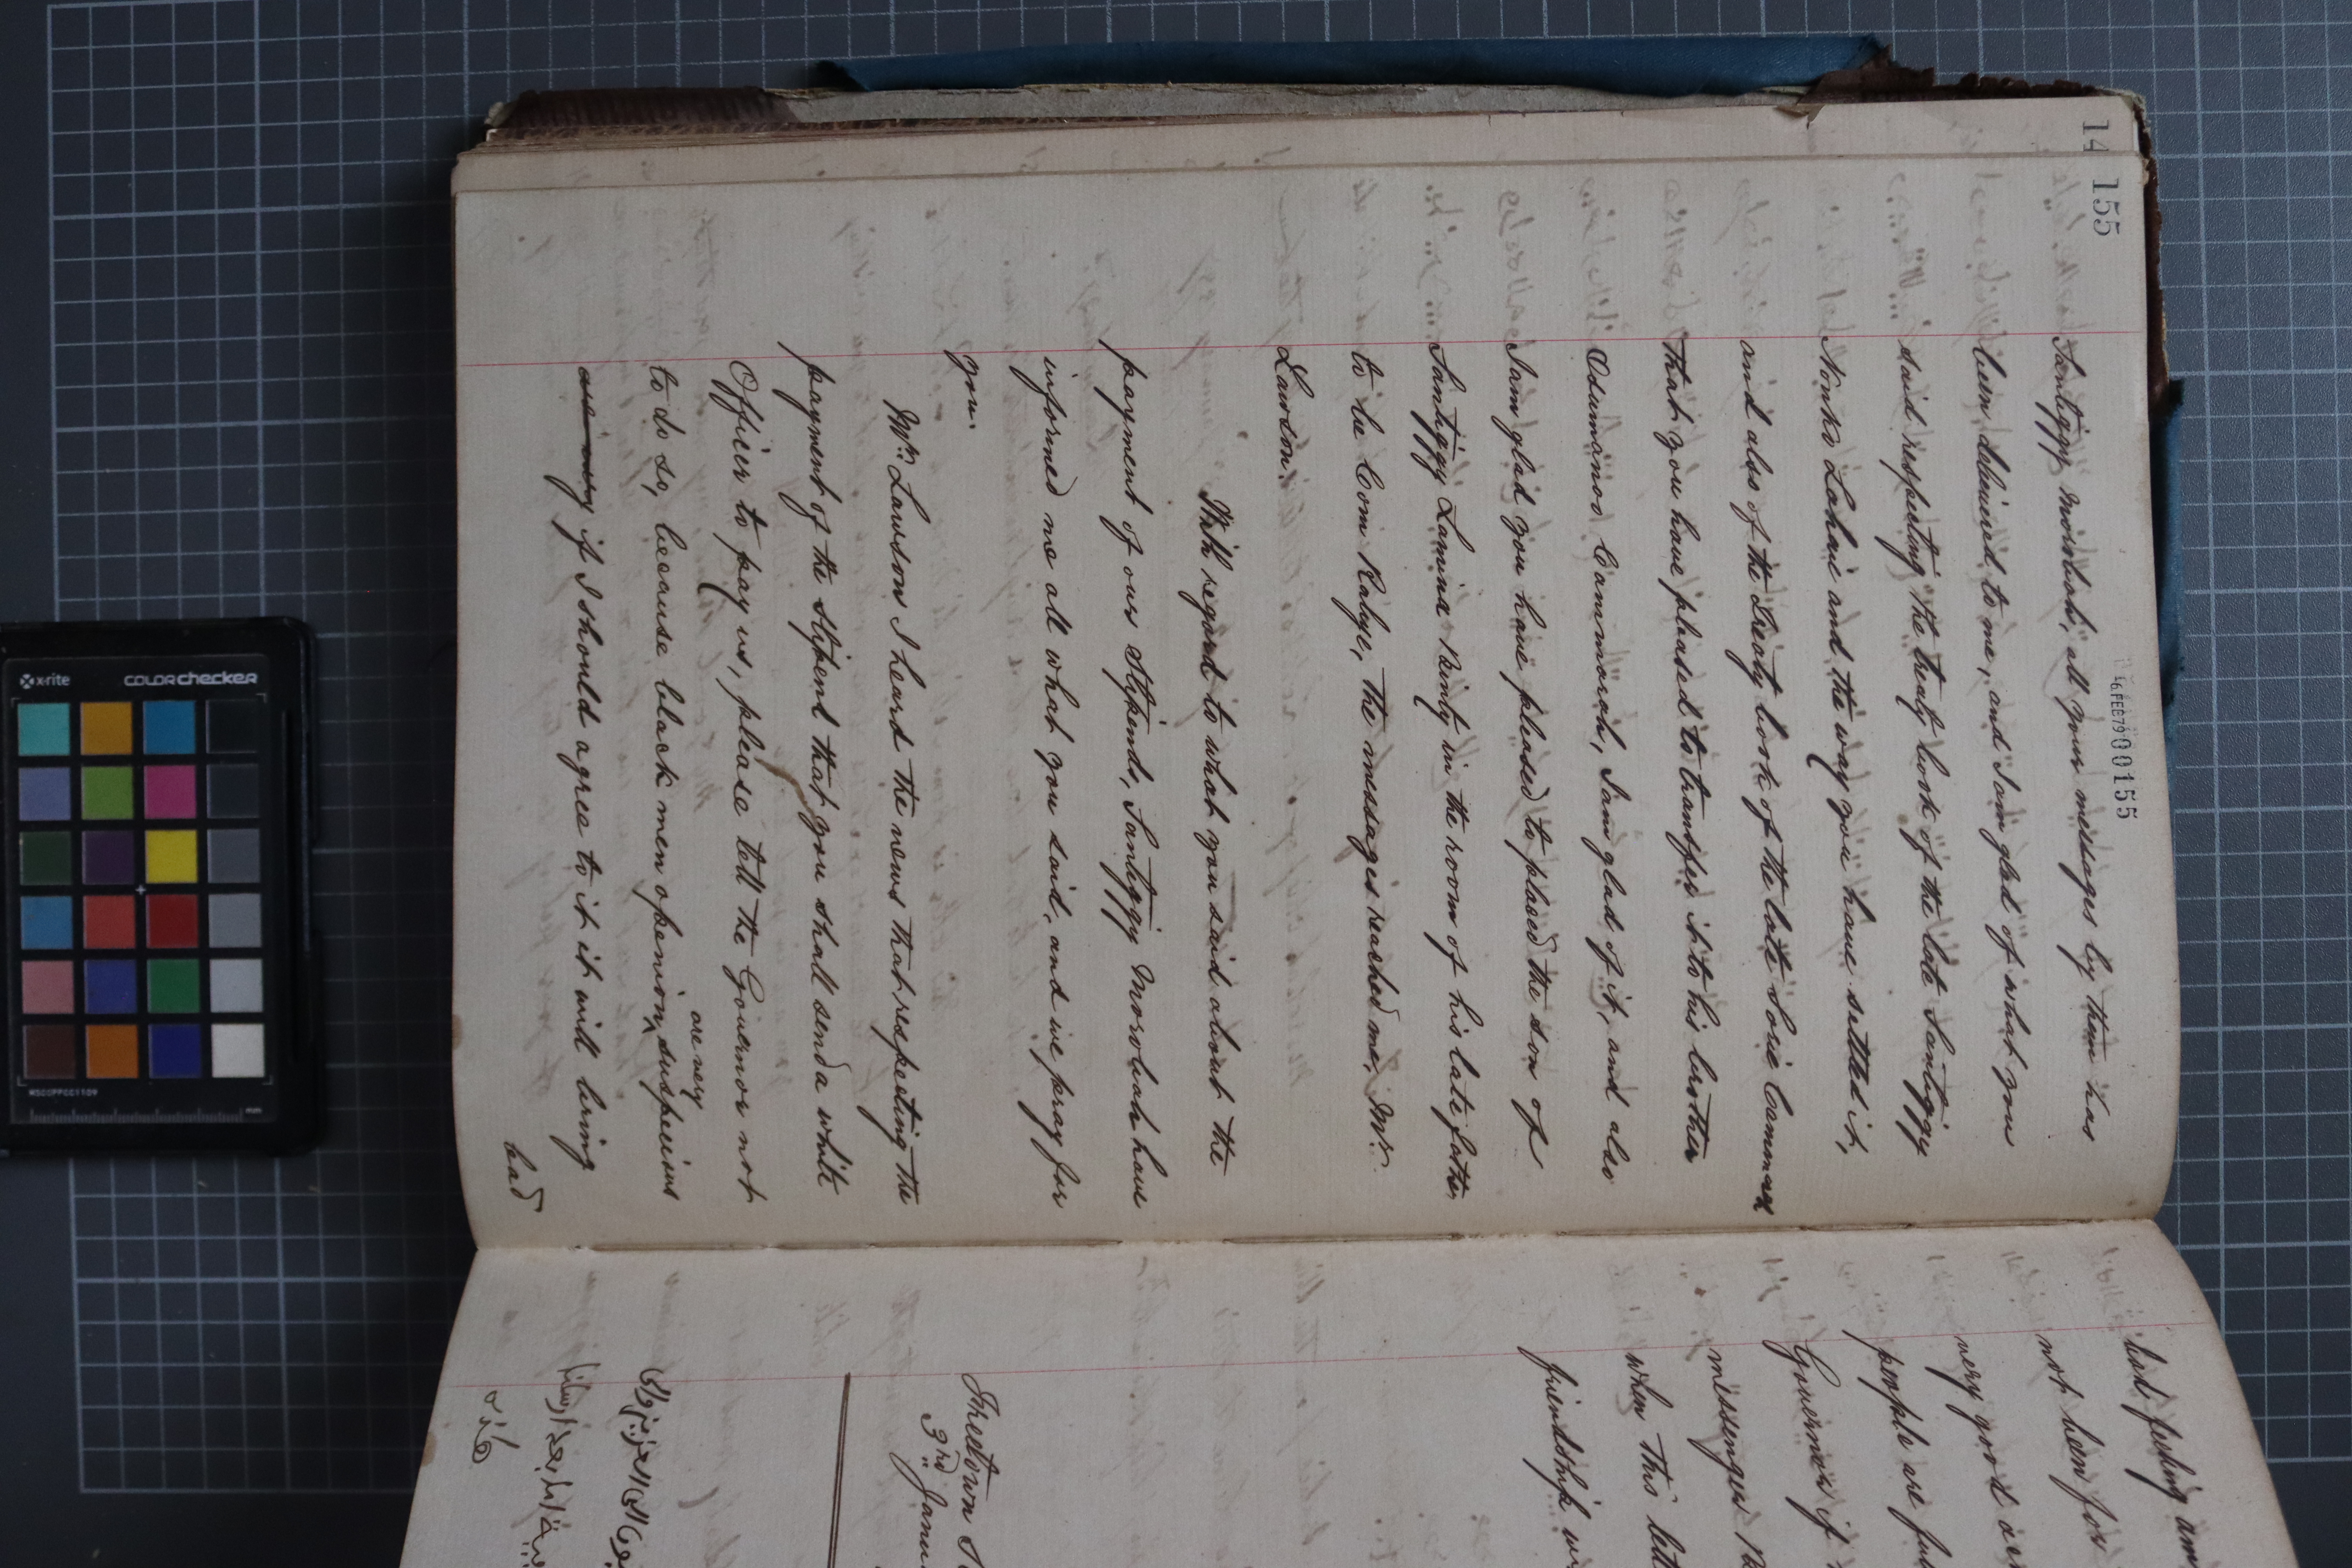 14
155
16FEB79 000155
Santiggy Morobah, all your messages by them has
been delivered to me, and I am glad of what you
said respecting the treaty book of the late Santiggy
Nonko Lahai and the way you have settled it,
and also of the Treaty book of the late Sorie Cammara
that you have pleased to transfer it to his brother
Odumanoo Cammorah, I am glad of it, and also
I am glad you have pleased to placed the son of
Santiggy Lamina Kinty in the room of his late father,
to be Com Kabye, the messages reached me, Mr.
Lawson.
With regard to what you said about the
payment of our Stipend, Santiggy Morobah have
informed me all what you said, and we pray for
you.
Mr. Lawson I heard the news that respecting the
payment of the Stipend that you shall send a white
Officer to pay us, please tell the Governor not
to do so, because black men openion ^ are very suspecious
are very if I should agree to it it will bring
bad
bad feeling an
not been for
very good
people are ful
Governor if
messenger
when this lett
friendship
Freetown S
3rd Janu